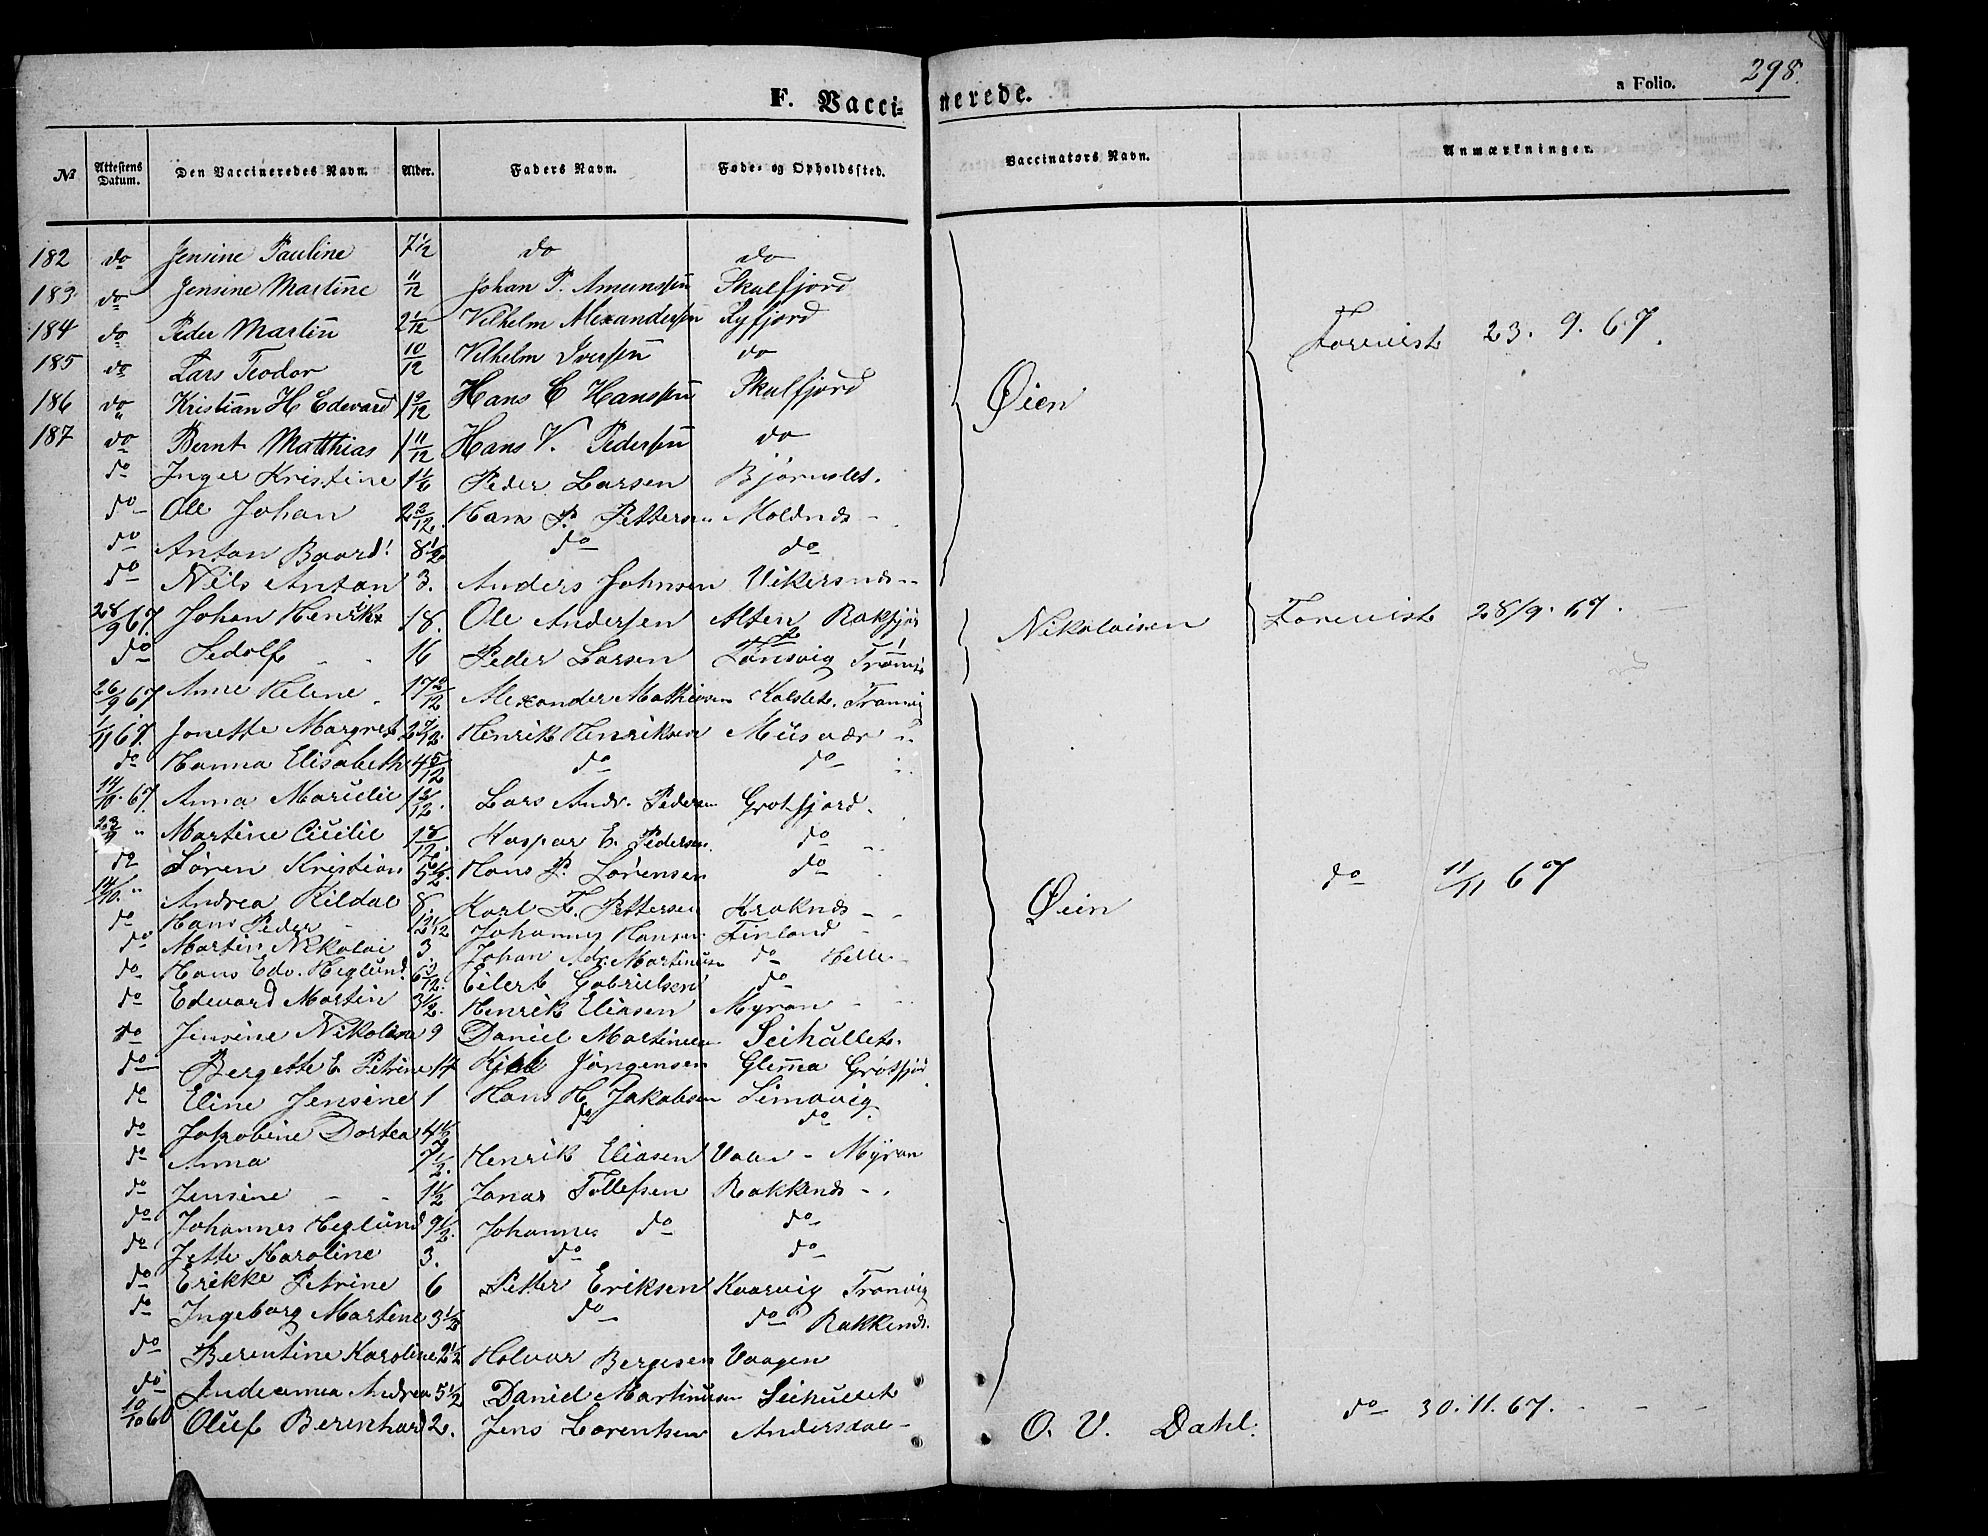 F. Vacci- nerede. a Folio. 298.
№ Attestens Datum. Den Vaccineredes Navn. Alder. Faders Navn. Føde- og Opholdssted. Vaccinators Navn. Anmærkninger.
182 do Jensine Pauline 7 1/12 do do
183 do Jensine Martine 11/12 Johan P. Amunsen Skulfjord
184 do Peder Martin 2 1/12 Vilhelm Alexandersen Ryfjord Foreviist 23. 9. 67.
185 do Lars Teodor 10/12 Vilhelm Iversen do
186 do Kristian H Edevard 1 9/12 Hans C Hansen Skulfjord Øien
187 do Bernt Matthias 1 11/12 Hans V. Pedersen do
do Inger Kristine 1 1/2 Peder Larsen Bjørnslet.
do Ole Johan 2 3/12. Hans P. Pettersen Moldnds
do Anton Baard 8 1/2 do do
do Nils Anton 3. Anders Johnsen Vikersnds
28/9 67. Johan Henrik 18. Ole Andersen Alten Rakfjor Nikolaisen Foreviist 28/9. 67.
do Sedolf 16 Peder Larsen Tønsvig
26/9 67 Anne Helene 17 Alexander Mathiesen Kalslet. Tromvig
1/11 67. Jonette Margret 2 7/12. Henrik Henriksen Musvær
do Hanna Elisabeth 4 5/12 do do
14/10. 67. Anna Marelie 1 5/12. Lars Andr. Pedersen Grotfjord.
23/9 " Martine Cicilie 1 8/12. Kaspar E. Pedersen. do
do Søren Kristian 5 1/2. Hans P. Sørensen do do 11/11 67
14/10. " Andrea Kildal 8 Karl F. Pettersen Kraknds Øien
do Hans Peder Johannes Hansen Finland
do Martin Nikolai 3 Johan Adr. Martinusen do Helle
do Hans Edv. Heglund. 6 Eilert Gabrielsen do
do Edevard Martin 3 1/2. Henrik Eliasen Myran
do Jensine Nikoline 9 Daniel Martinusen Seihullet.
do Bergette E Petrine 14 Kjel Jørgensen Glemma Grøtfjor
do Eline Jensine 1 Hans H. Jakobsen Simavig
do Jakobine Dortea 4 1/2 do do
do Anna 7 1/2. Henrik Eliasen Vaar - Myran
do Jensine 1 1/2 Jonas Tollefsen Rakkends
do Johannes Heglund 9 1/2. Johannes do do
do Jette Karoline 3. do do
do Erikke Petrine 6 Petter Eriksen Kaarvig Tromvig
do Ingeborg Martine 3 1/2 do do Rakkends.
do Berentine Karoline 2 1/2 Holvar Bergesen Vaagen
do Andrea 5 1/2 Daniel Martinusen Seihullet
10/10 60 Oluf Berenhard 2. Jens Lorentsen Andersdal O. V. Dahl. do 30. 11. 67.